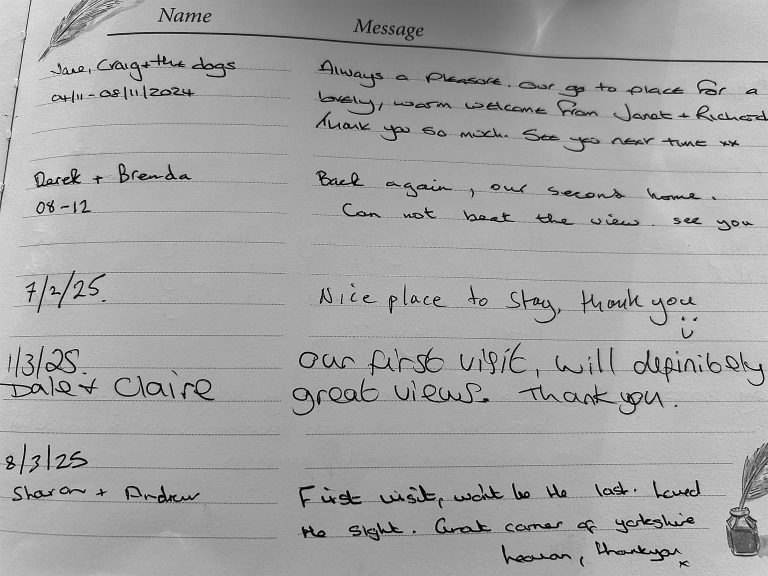 Name Message
Jane, Craig + the dogs
04/11 - 08/11/2024
Always a pleasure. Our go to place for a
lovely, warm welcome from Janet + Richard
Thank you so much. See you next time xx
Derek + Brenda
08-12
Back again, our second home.
Can not beat the view. see you
7/2/25.
Nice place to stay, thank you
1/3/25.
Dale + Claire
Our first visit, will definitely
great views. Thank you.
8/3/25
Sharon + Andrew
First visit, won't be the last. Loved
the sight. Great corner of yorkshire
heaven, thankyou x